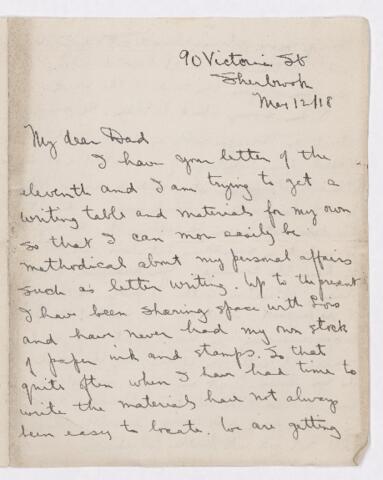 90 Victoria St
Sherbrook
May 12/18
My dear Dad
I have your letter of the
eleventh and I am trying to get a
writing table and materials for my own
so that I can more easily be
methodical about my personal affairs
such as letter writing. Up to the present
I have been sharing space with Lois
and have never had my own stock
of paper ink and stamps. So that
quite often when I have had time to
write the materials have not always
been easy to locate. We are getting